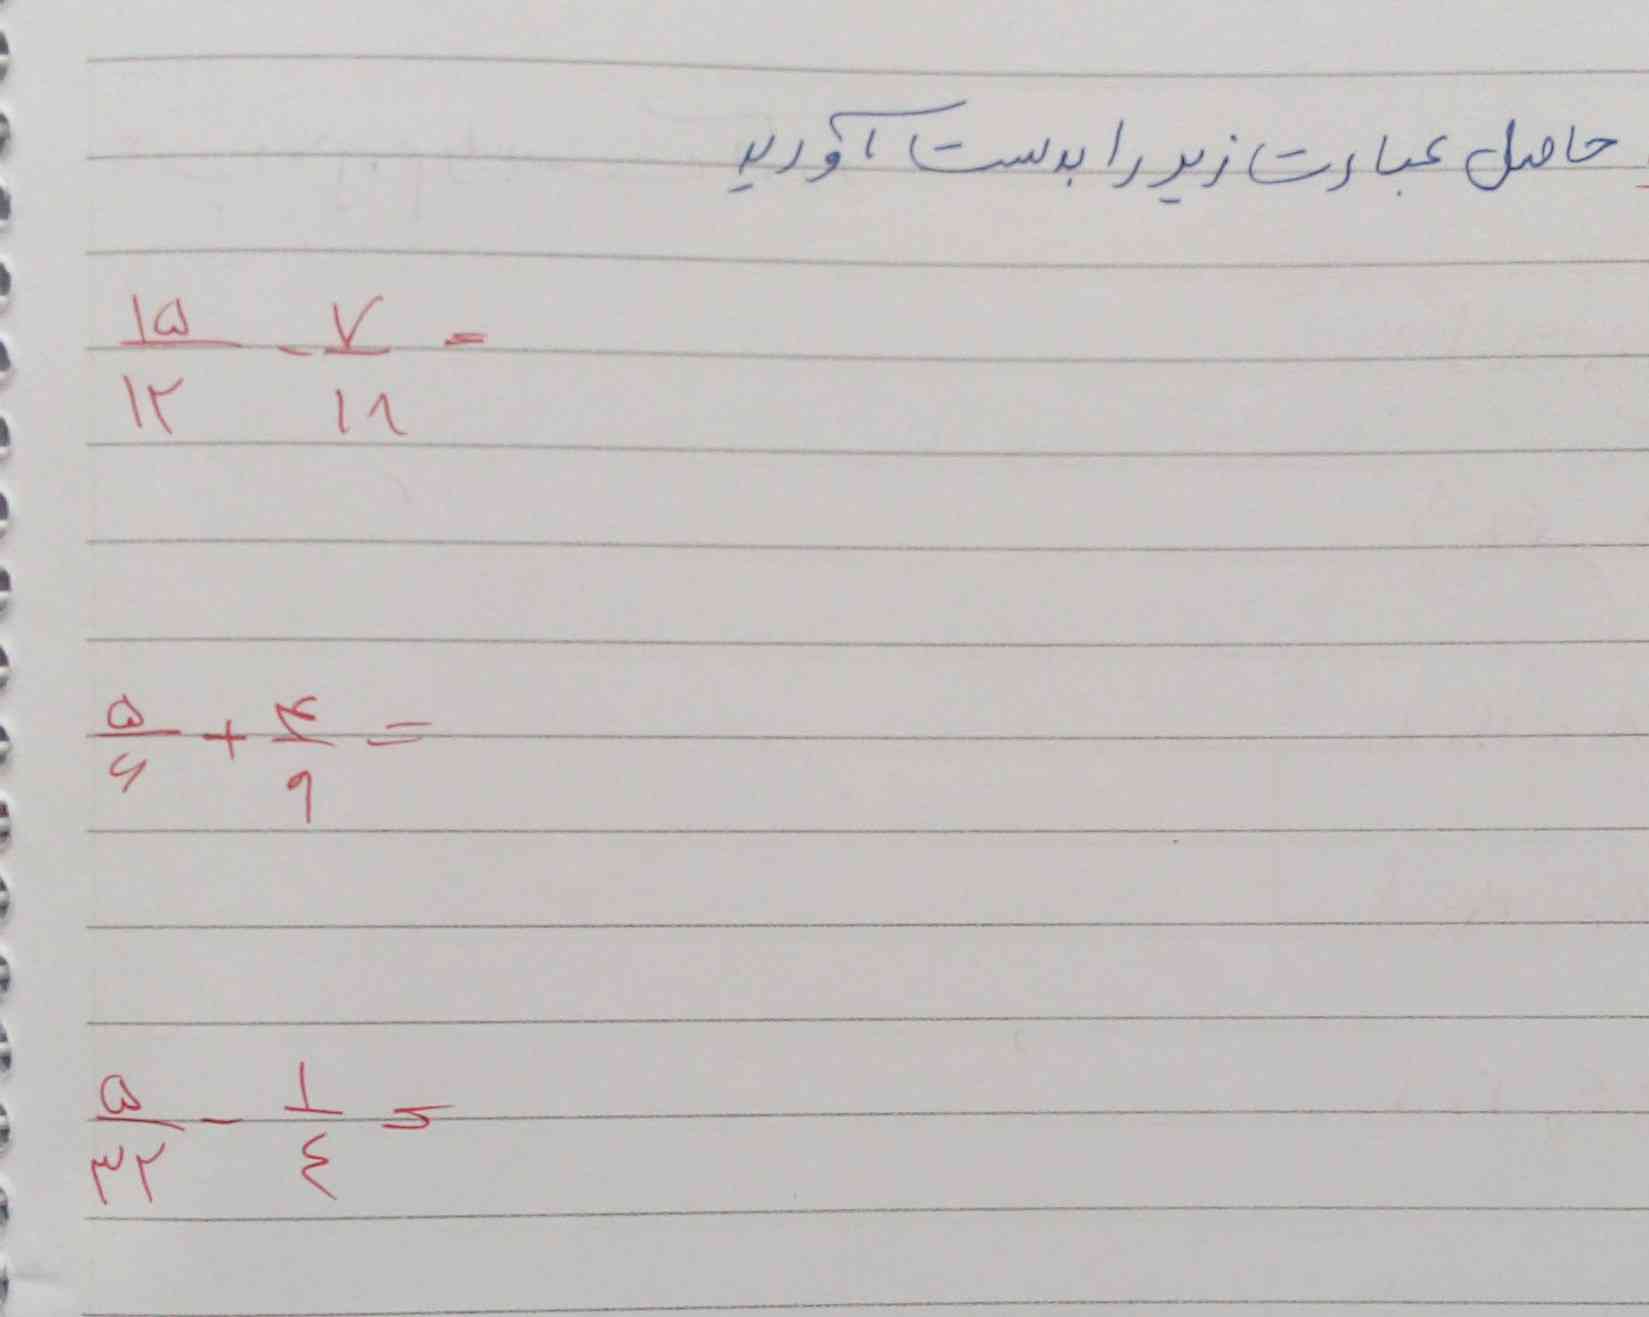 حاصل عبارت زیر را بدست آورید
۱۵/۱۲ - ۷/۱۸ =
۵/۶ + ۴/۹ =
۵/۳۲ - ۱/۴ =